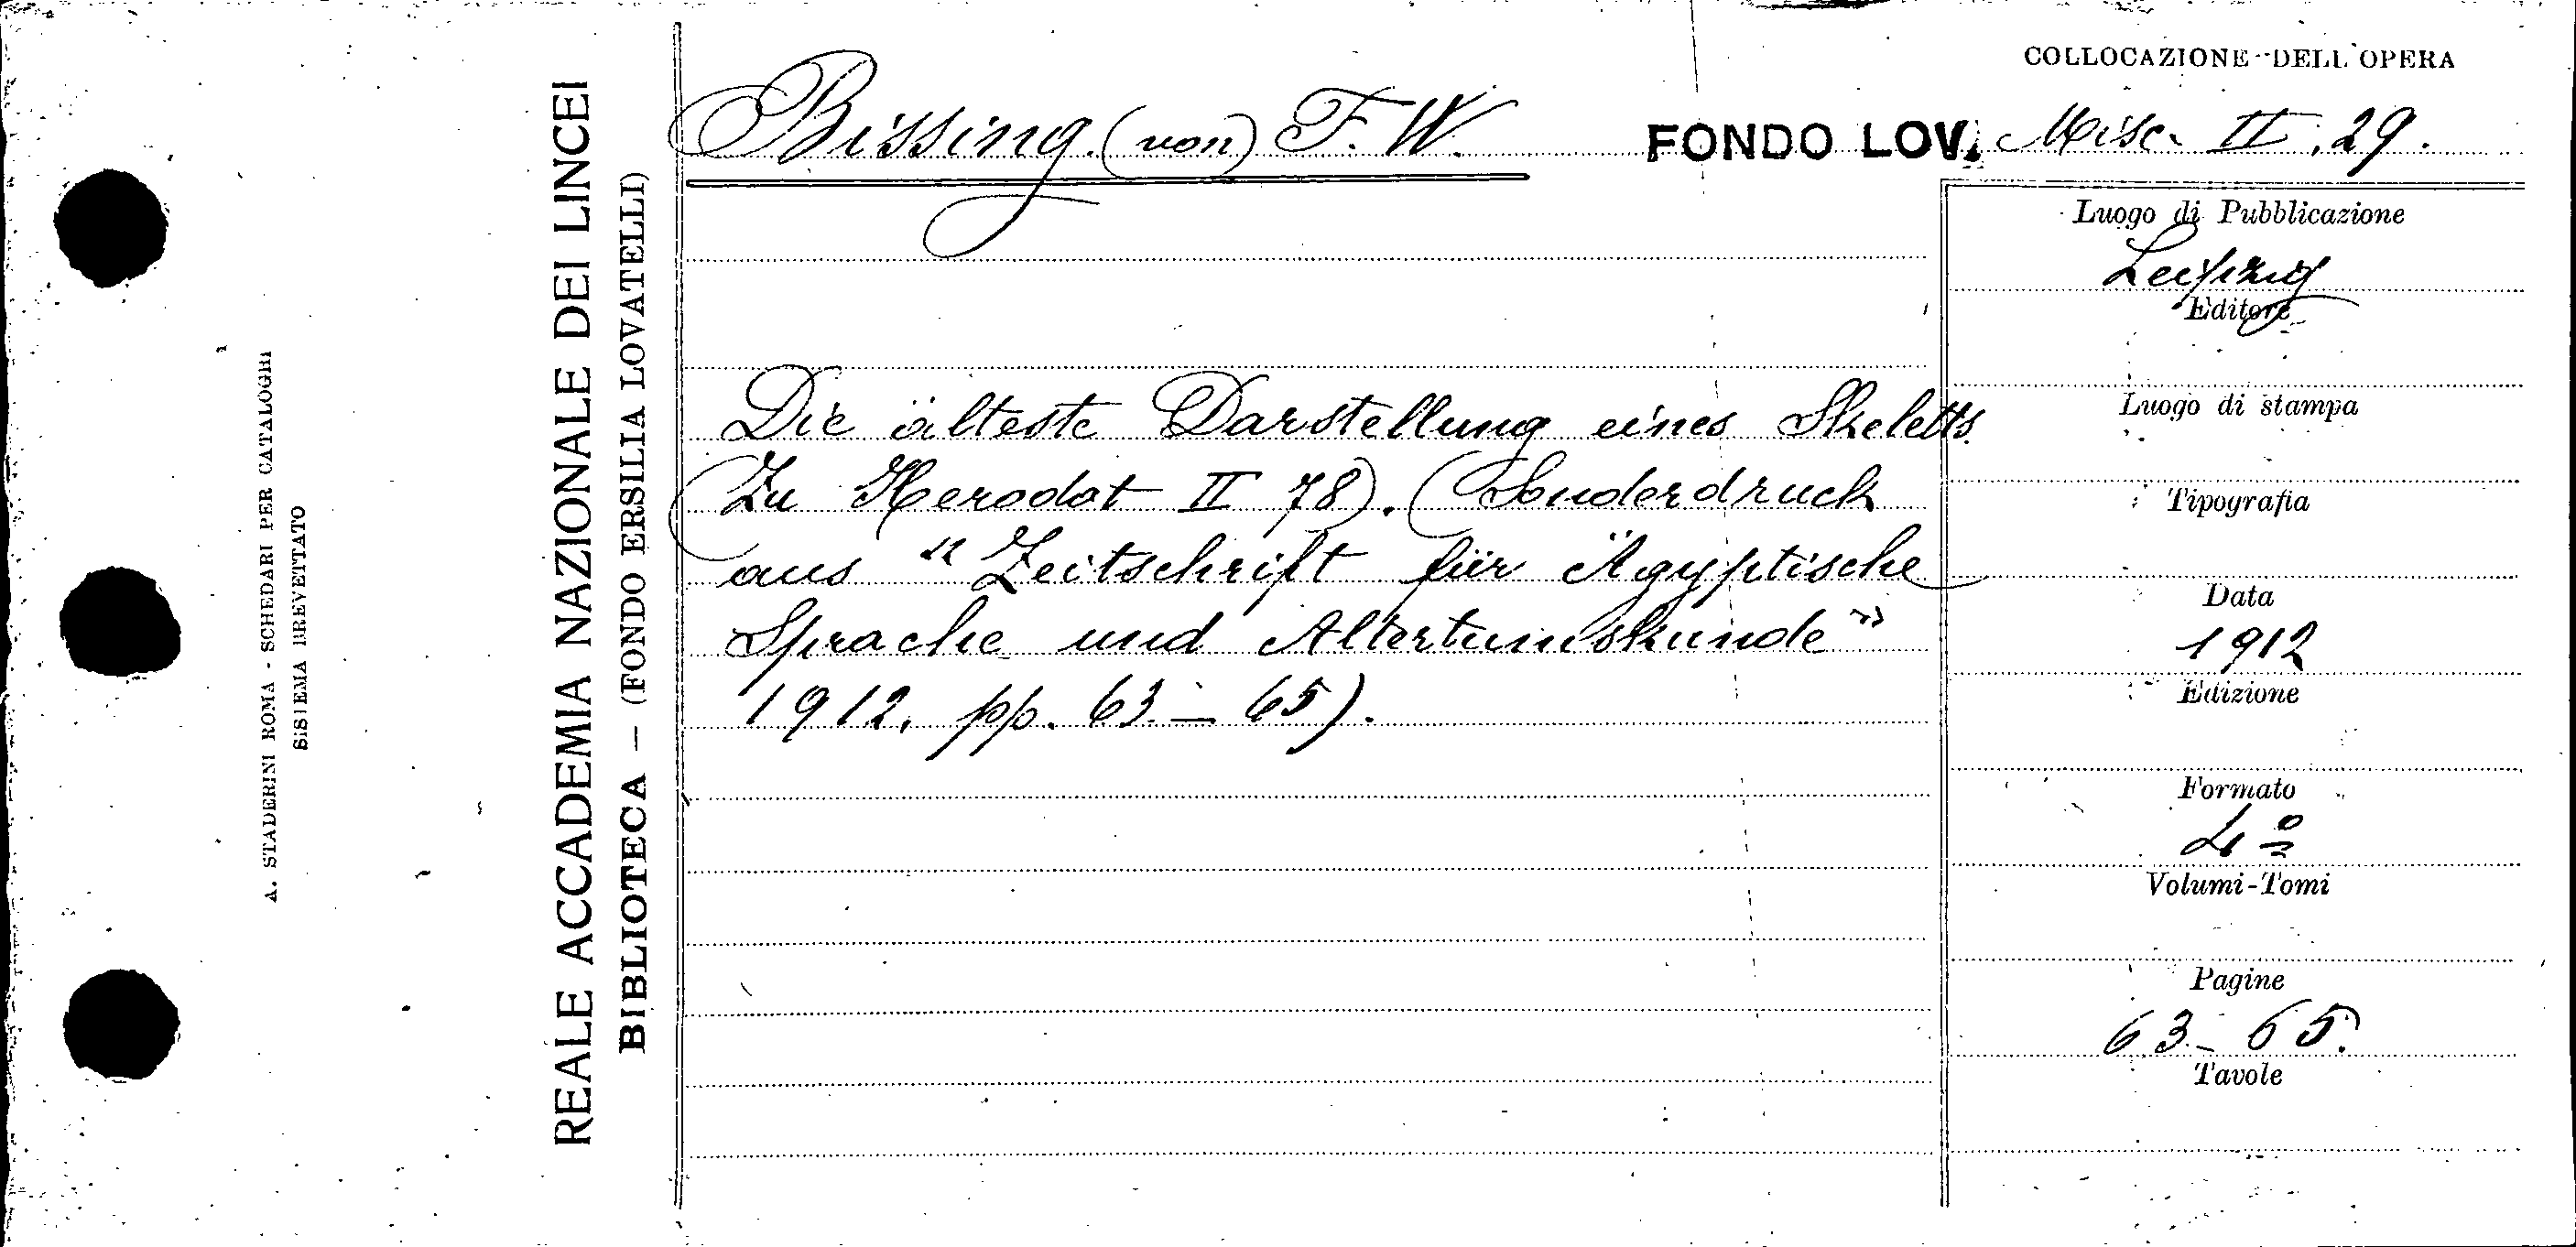 A. STADERINI ROMA - SCHEDARI PER CATALOGHI
SISTEMA BREVETTATO
REALE ACCADEMIA NAZIONALE DEI LINCEI
BIBLIOTECA — (FONDO ERSILIA LOVATELLI)
COLLOCAZIONE DELL'OPERA
Bissing (von) F. W.
FONDO LOV. Misc. II, 29.
Die älteste Darstellung eines Skeletts
(Zu Herodot II 78). (Sonderdruck
aus "Zeitschrift für Ägyptische
Sprache und Altertumskunde"
1912, pp. 63 - 65).
Luogo di Pubblicazione
Leipzig
Editore
Luogo di stampa
Tipografia
Data
1912
Edizione
Formato
4º
Volumi-Tomi
Pagine
63 - 65.
Tavole